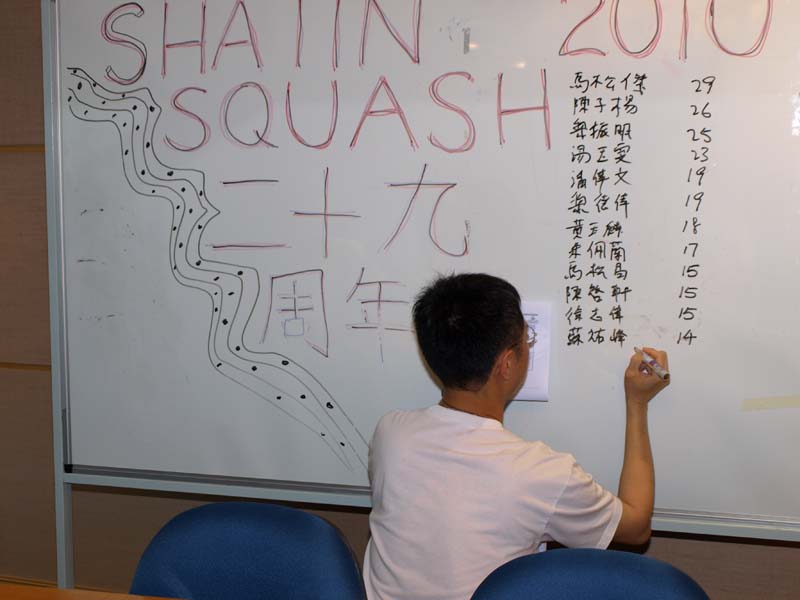 SHATIN 2010
SQUASH
二十九
周年
馬松傑 29
陳子楊 26
梁振明 25
湯正雯 23
潘偉文 19
梁德偉 19
黃玉麟 18
朱佩蘭 17
馬松昌 15
陳啓軒 15
徐志偉 15
蘇祐峰 14